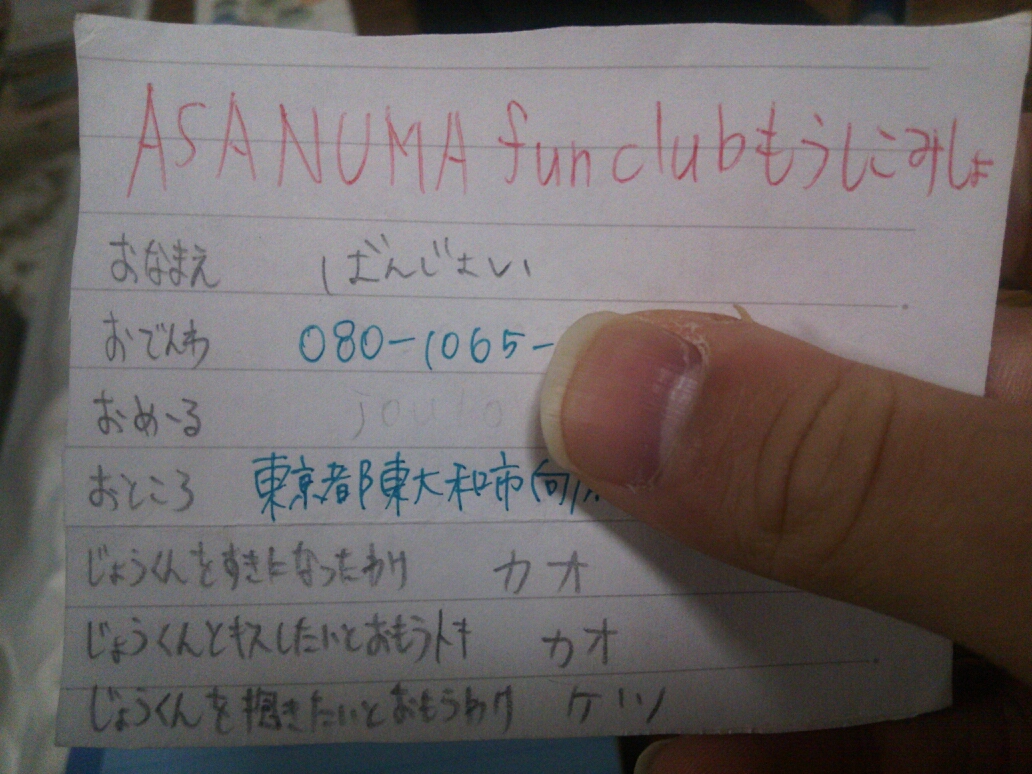 ASANUMA fun clubもうしこみしょ
おなまえ ばんじょい
おでんわ 080-1065-
おめーる jouto
おところ 東京都東大和市向原
じょうくんをすきになったわけ カオ
じょうくんとキスしたいとおもうトキ カオ
じょうくんを抱きたいとおもうわけ ケツ